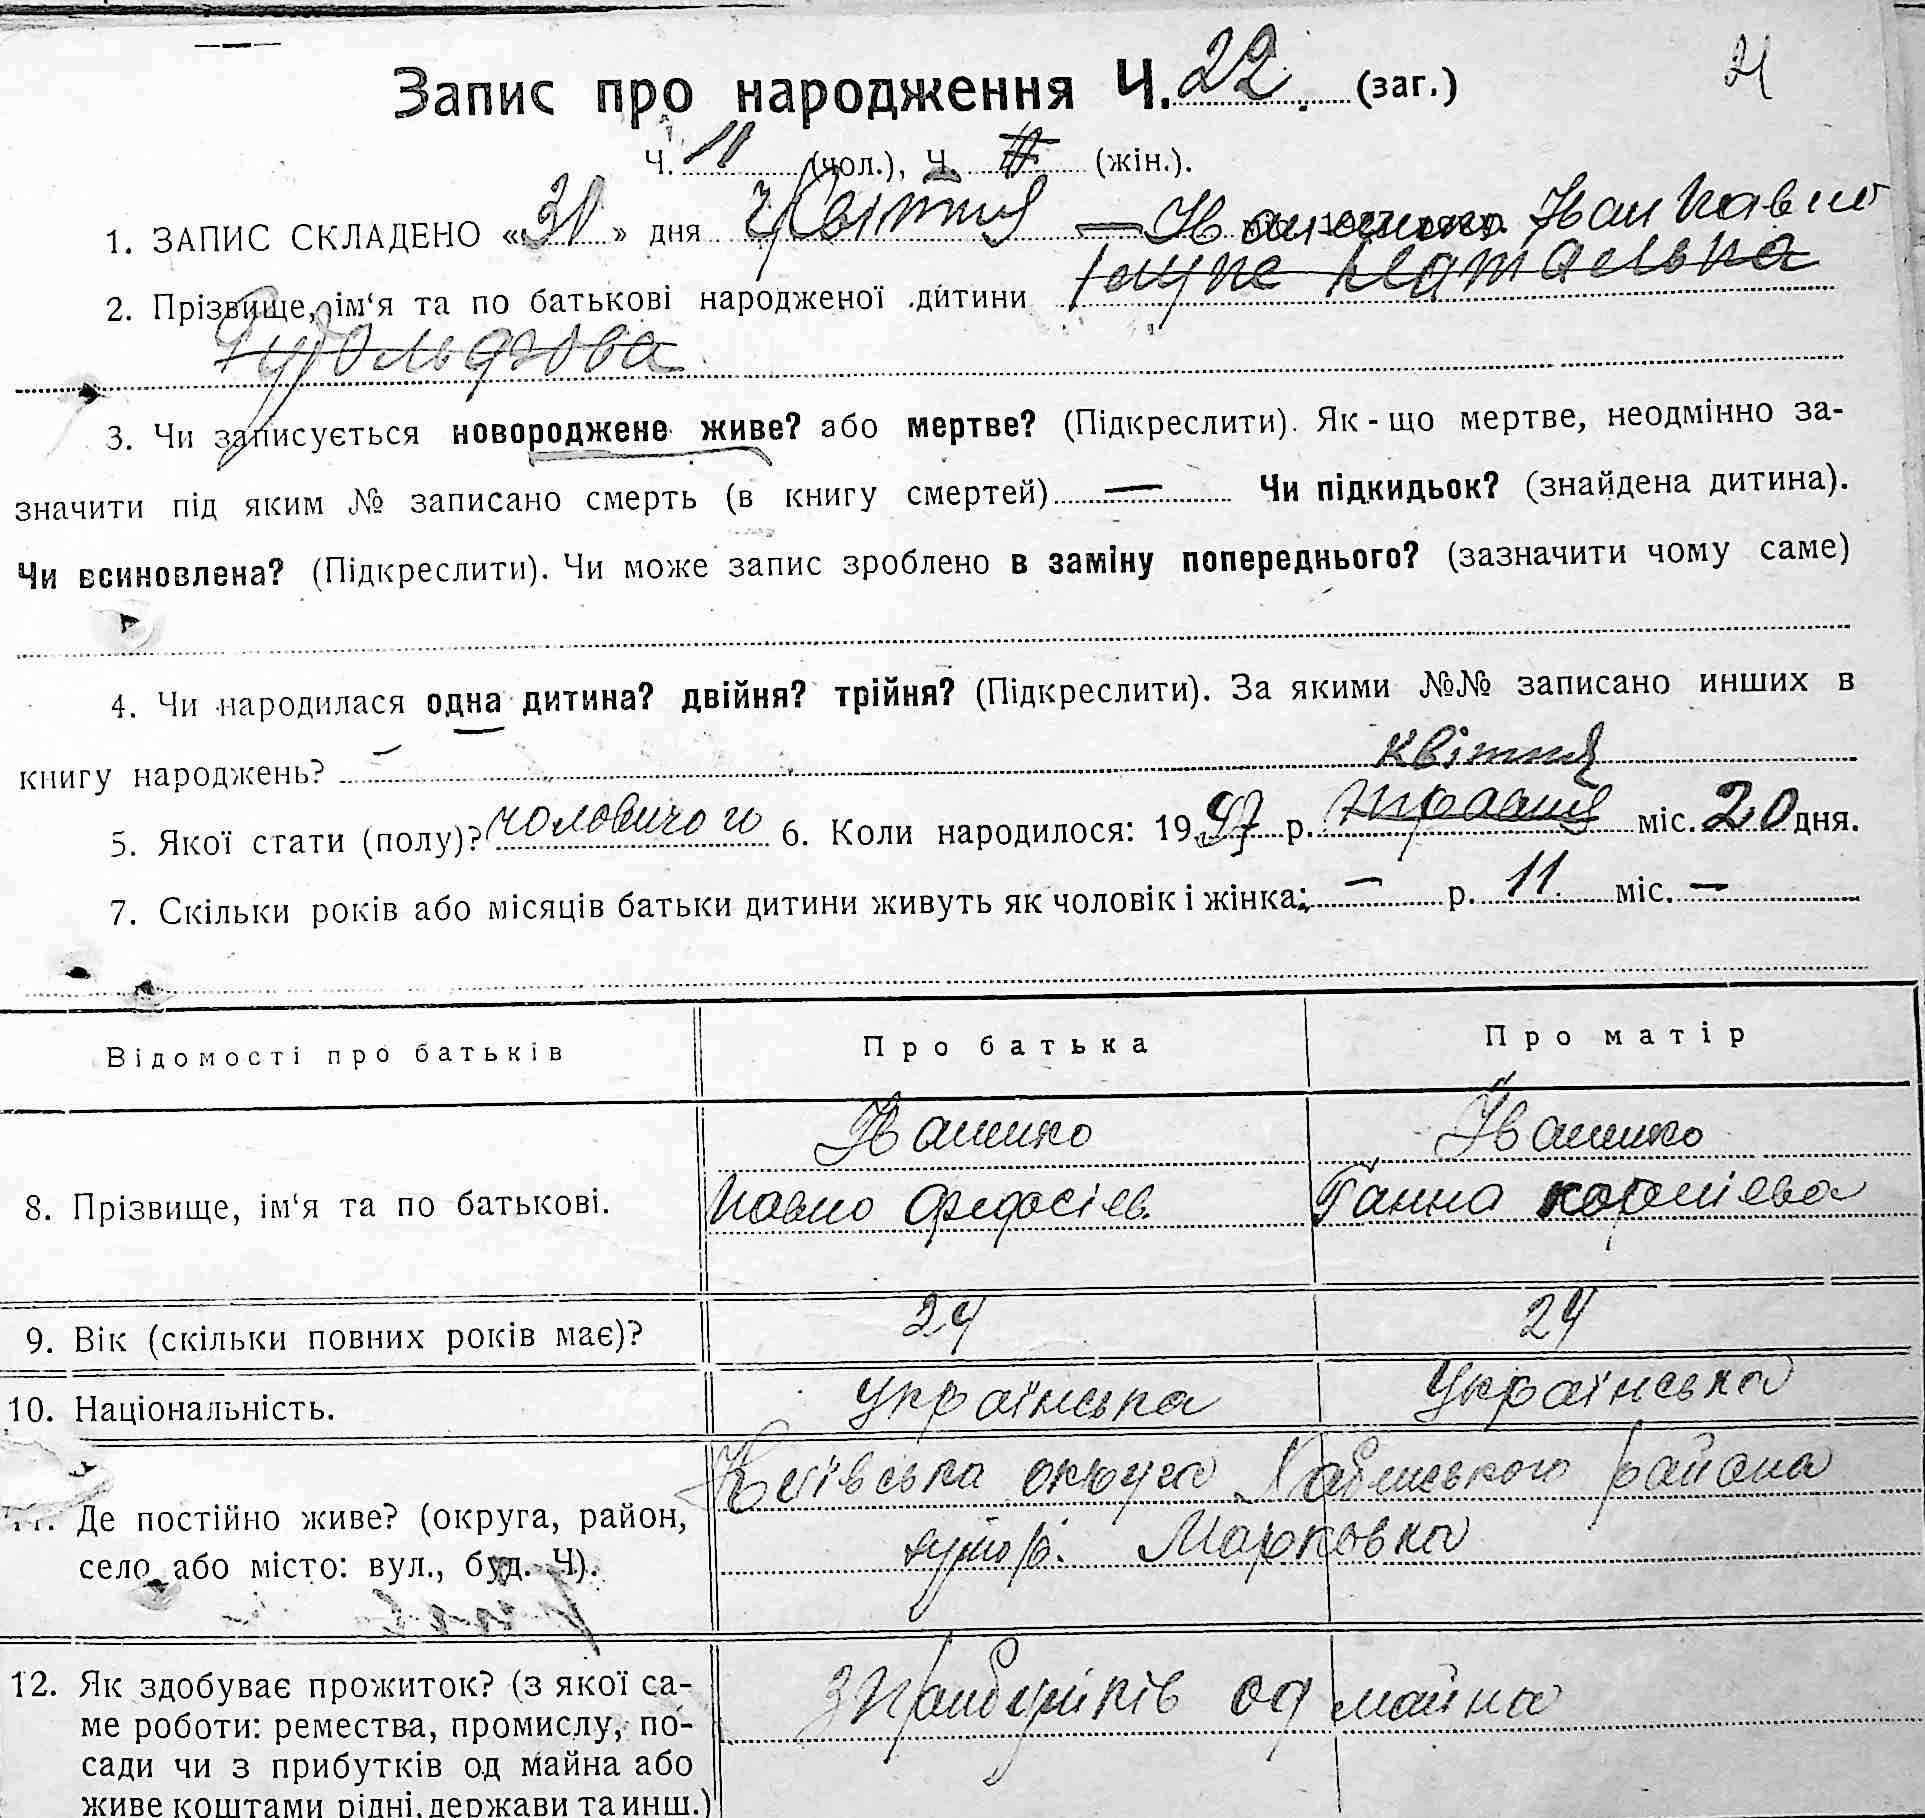 21
Запис про народження Ч. 22. (заг.)
Ч. 11 (чол.), Ч. (жін.).
1. ЗАПИС СКЛАДЕНО «30» дня Квітня — Іваненко Іван Павлов
2. Прізвище, ім‘я та по батькові народженої дитини
3. Чи записується новороджене живе? або мертве? (Підкреслити). Як-що мертве, неодмінно за-
значити під яким № записано смерть (в книгу смертей) — Чи підкидьок? (знайдена дитина).
Чи всиновлена? (Підкреслити). Чи може запис зроблено в заміну попереднього? (зазначити чому саме)
4. Чи народилася одна дитина? двійня? трійня? (Підкреслити). За якими №№ записано инших в
квітня
книгу народжень? —
5. Якої стати (полу)? чоловичого 6. Коли народилося: 1927 р. травня міс. 20 дня.
7. Скільки років або місяців батьки дитини живуть як чоловік і жінка: — р. 11 міс. —
Відомості про батьків Про батька Про матір
Іваненко Іваненко
8. Прізвище, ім‘я та по батькові. Павло Федосієв. Ганна Корнієва
9. Вік (скільки повних років має)? 24 24
10. Національність. Українська Українська
Київська округа Хабенського района
11. Де постійно живе? (округа, район,
село або місто: вул., буд. Ч). хутор. Марковка
12. Як здобуває прожиток? (з якої са- з прибутків од майна
ме роботи: ремества, промислу, по-
сади чи з прибутків од майна або
живе коштами рідні, держави та инш.)